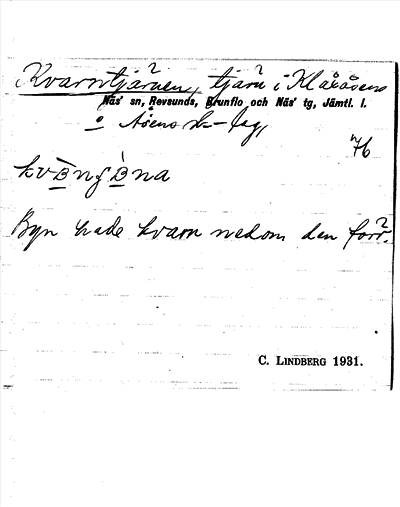 Kvarntjärnen, tjärn i Klaxåsens
Näs' sn, Revsunds, Brunflo och Näs' tg, Jämtl. l.
o Åsens sk-lag,
76
Byn hade kvarn nedom den förr.
C. LINDBERG 1931.